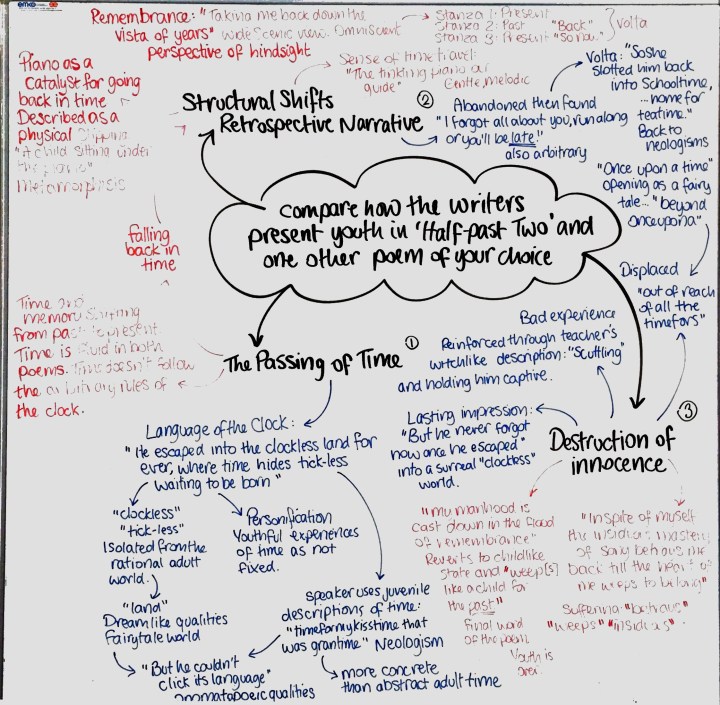 emko
Remembrance: "Taking me back down the
vista of years" wide scenic view. Omniscient
perspective of hindsight
Stanza 1: Present
Stanza 2: Past "Back"
Stanza 3: Present "So now"
Volta
Piano as a
Catalyst for going
back in time
Described as a
physical
"A child sitting under
the piano"
Metamorphosis
Sense of time travel:
"The tinkling piano our
guide" Gentle, melodic
Structural Shifts
Retrospective Narrative
②
Abandoned then found
"I forgot all about you, run along
or you'll be late!"
also arbitrary
Volta: "So she
slotted him back
into Schooltime,
... home for
teatime."
Back to
neologisms
"Once upon a time"
opening as a fairy
tale..." beyond
onceupona"
Displaced
"out of reach
of all the
timefors"
compare how the writers
present youth in 'Half-past Two' and
one other poem of your choice
falling
back in
time
Time and
memory Shifting
from past to present
Time is fluid in both
poems. Time doesn't follow
the arbitrary rules of
the clock.
The Passing of Time ①
Language of the Clock:
"He escaped into the clockless land for
ever, where time hides tick-less
waiting to be born"
"clockless"
"tick-less"
Isolated from the
rational adult
world.
"land"
Dreamlike qualities
Fairytale world
"But he couldn't
click its language"
onomatopoeic qualities
Personification
Youthful experiences
of time as not
fixed.
speaker uses juvenile
descriptions of time:
"timeformykisstime that
was grantime" Neologism
more concrete
than abstract adult time
Bad experience
Reinforced through teacher's
witchlike description: "Scuttling"
and holding him captive.
Lasting impression:
"But he never forgot
how once he escaped"
into a surreal "clockless"
world.
③
Destruction of
innocence
"my manhood is
cast down in the flood
of remembrance"
Reverts to childlike
state and "weep[s]
like a child for
the past"
Final word
of the poem
Youth is
over.
"Inspite of myself
the insidious mastery
of song betrays me
back till the heart of
me weeps to belong"
Suffering: "betrays"
"weeps" "insidious"